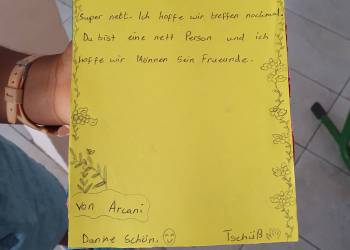 Super nett. Ich hoffe wir treffen nochmal.
Du bist eine nett Person und ich
hoffe wir können sein Frueunde.
von Arcani
Danke Schön.
Tschüß